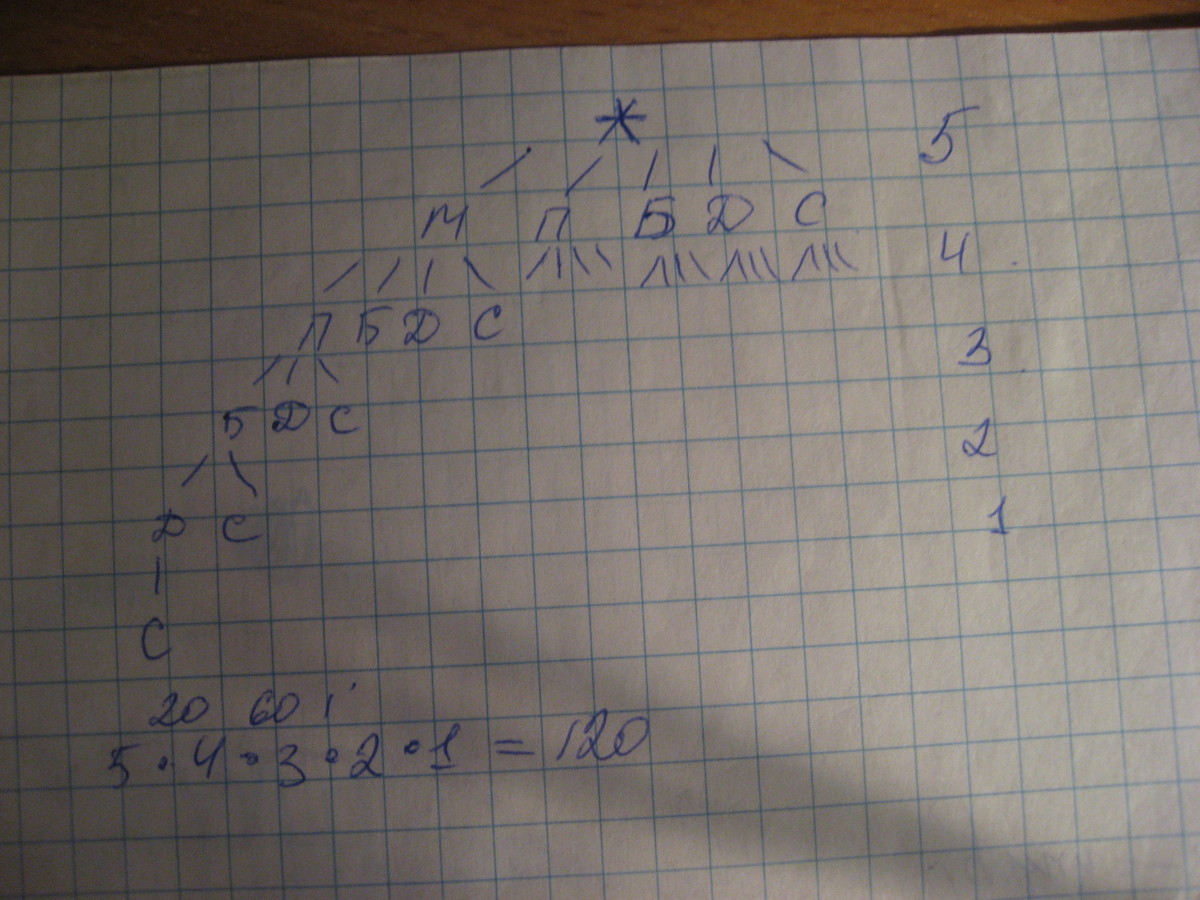 * 5
М П Б Д С
4
П Б Д С 3
Б Д С 2
Д С 1
С
20 60 1
5 · 4 · 3 · 2 · 1 = 120